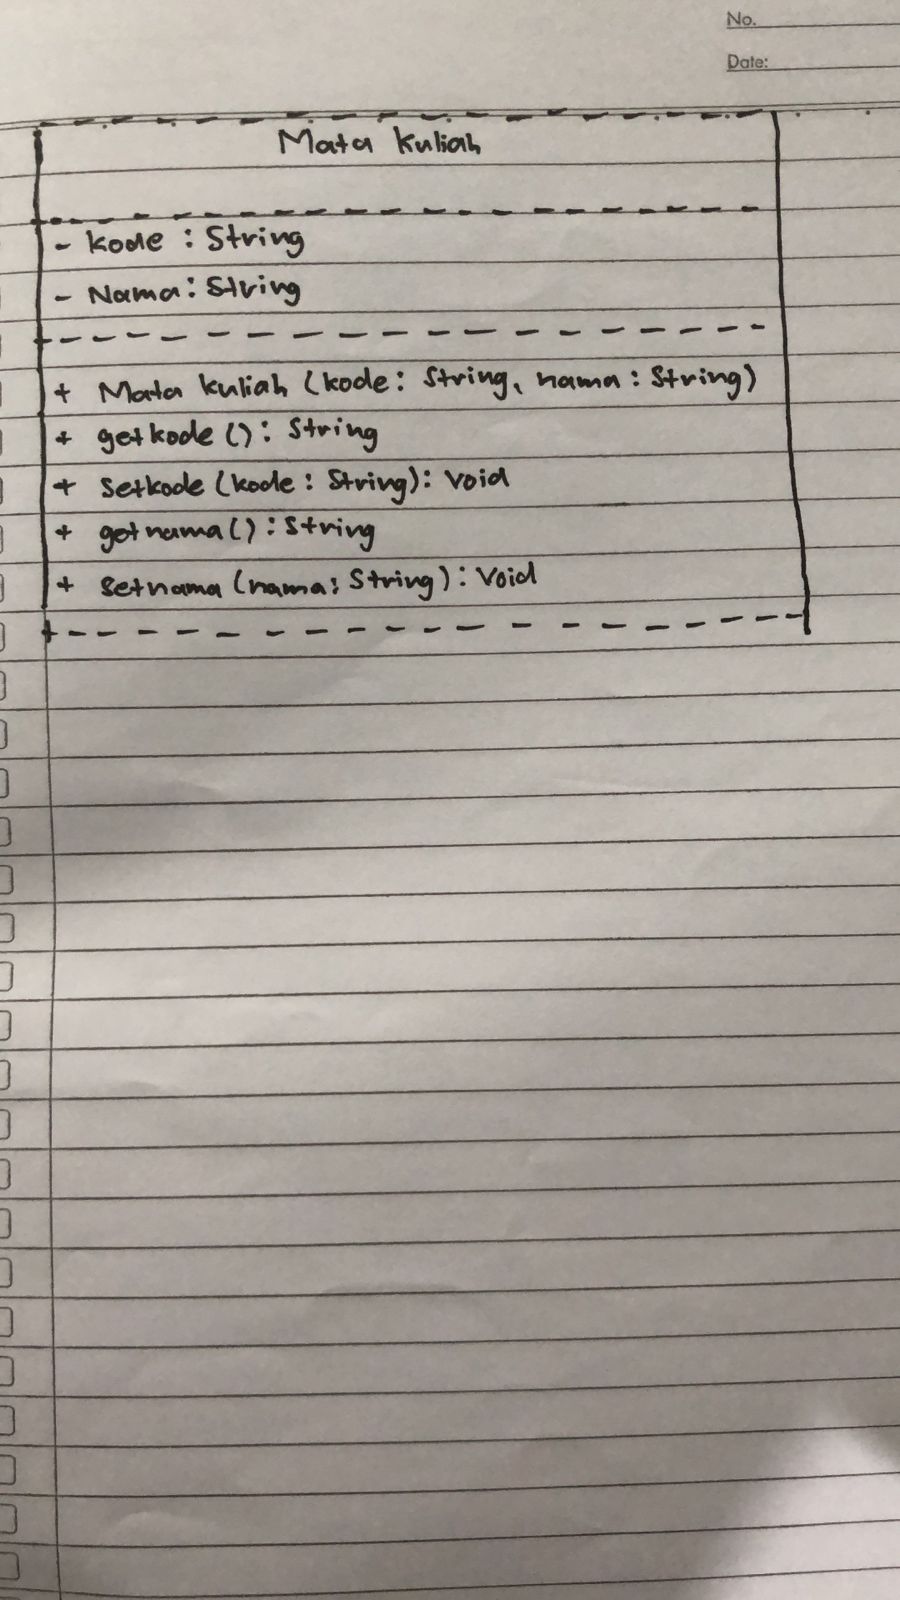 No.
Date:
Mata kuliah
- kode : String
- Nama : String
+ Mata kuliah (kode : String, nama : String)
+ getkode () : String
+ Setkode (kode : String) : Void
+ getnama () : String
+ Setnama (nama : String) : Void